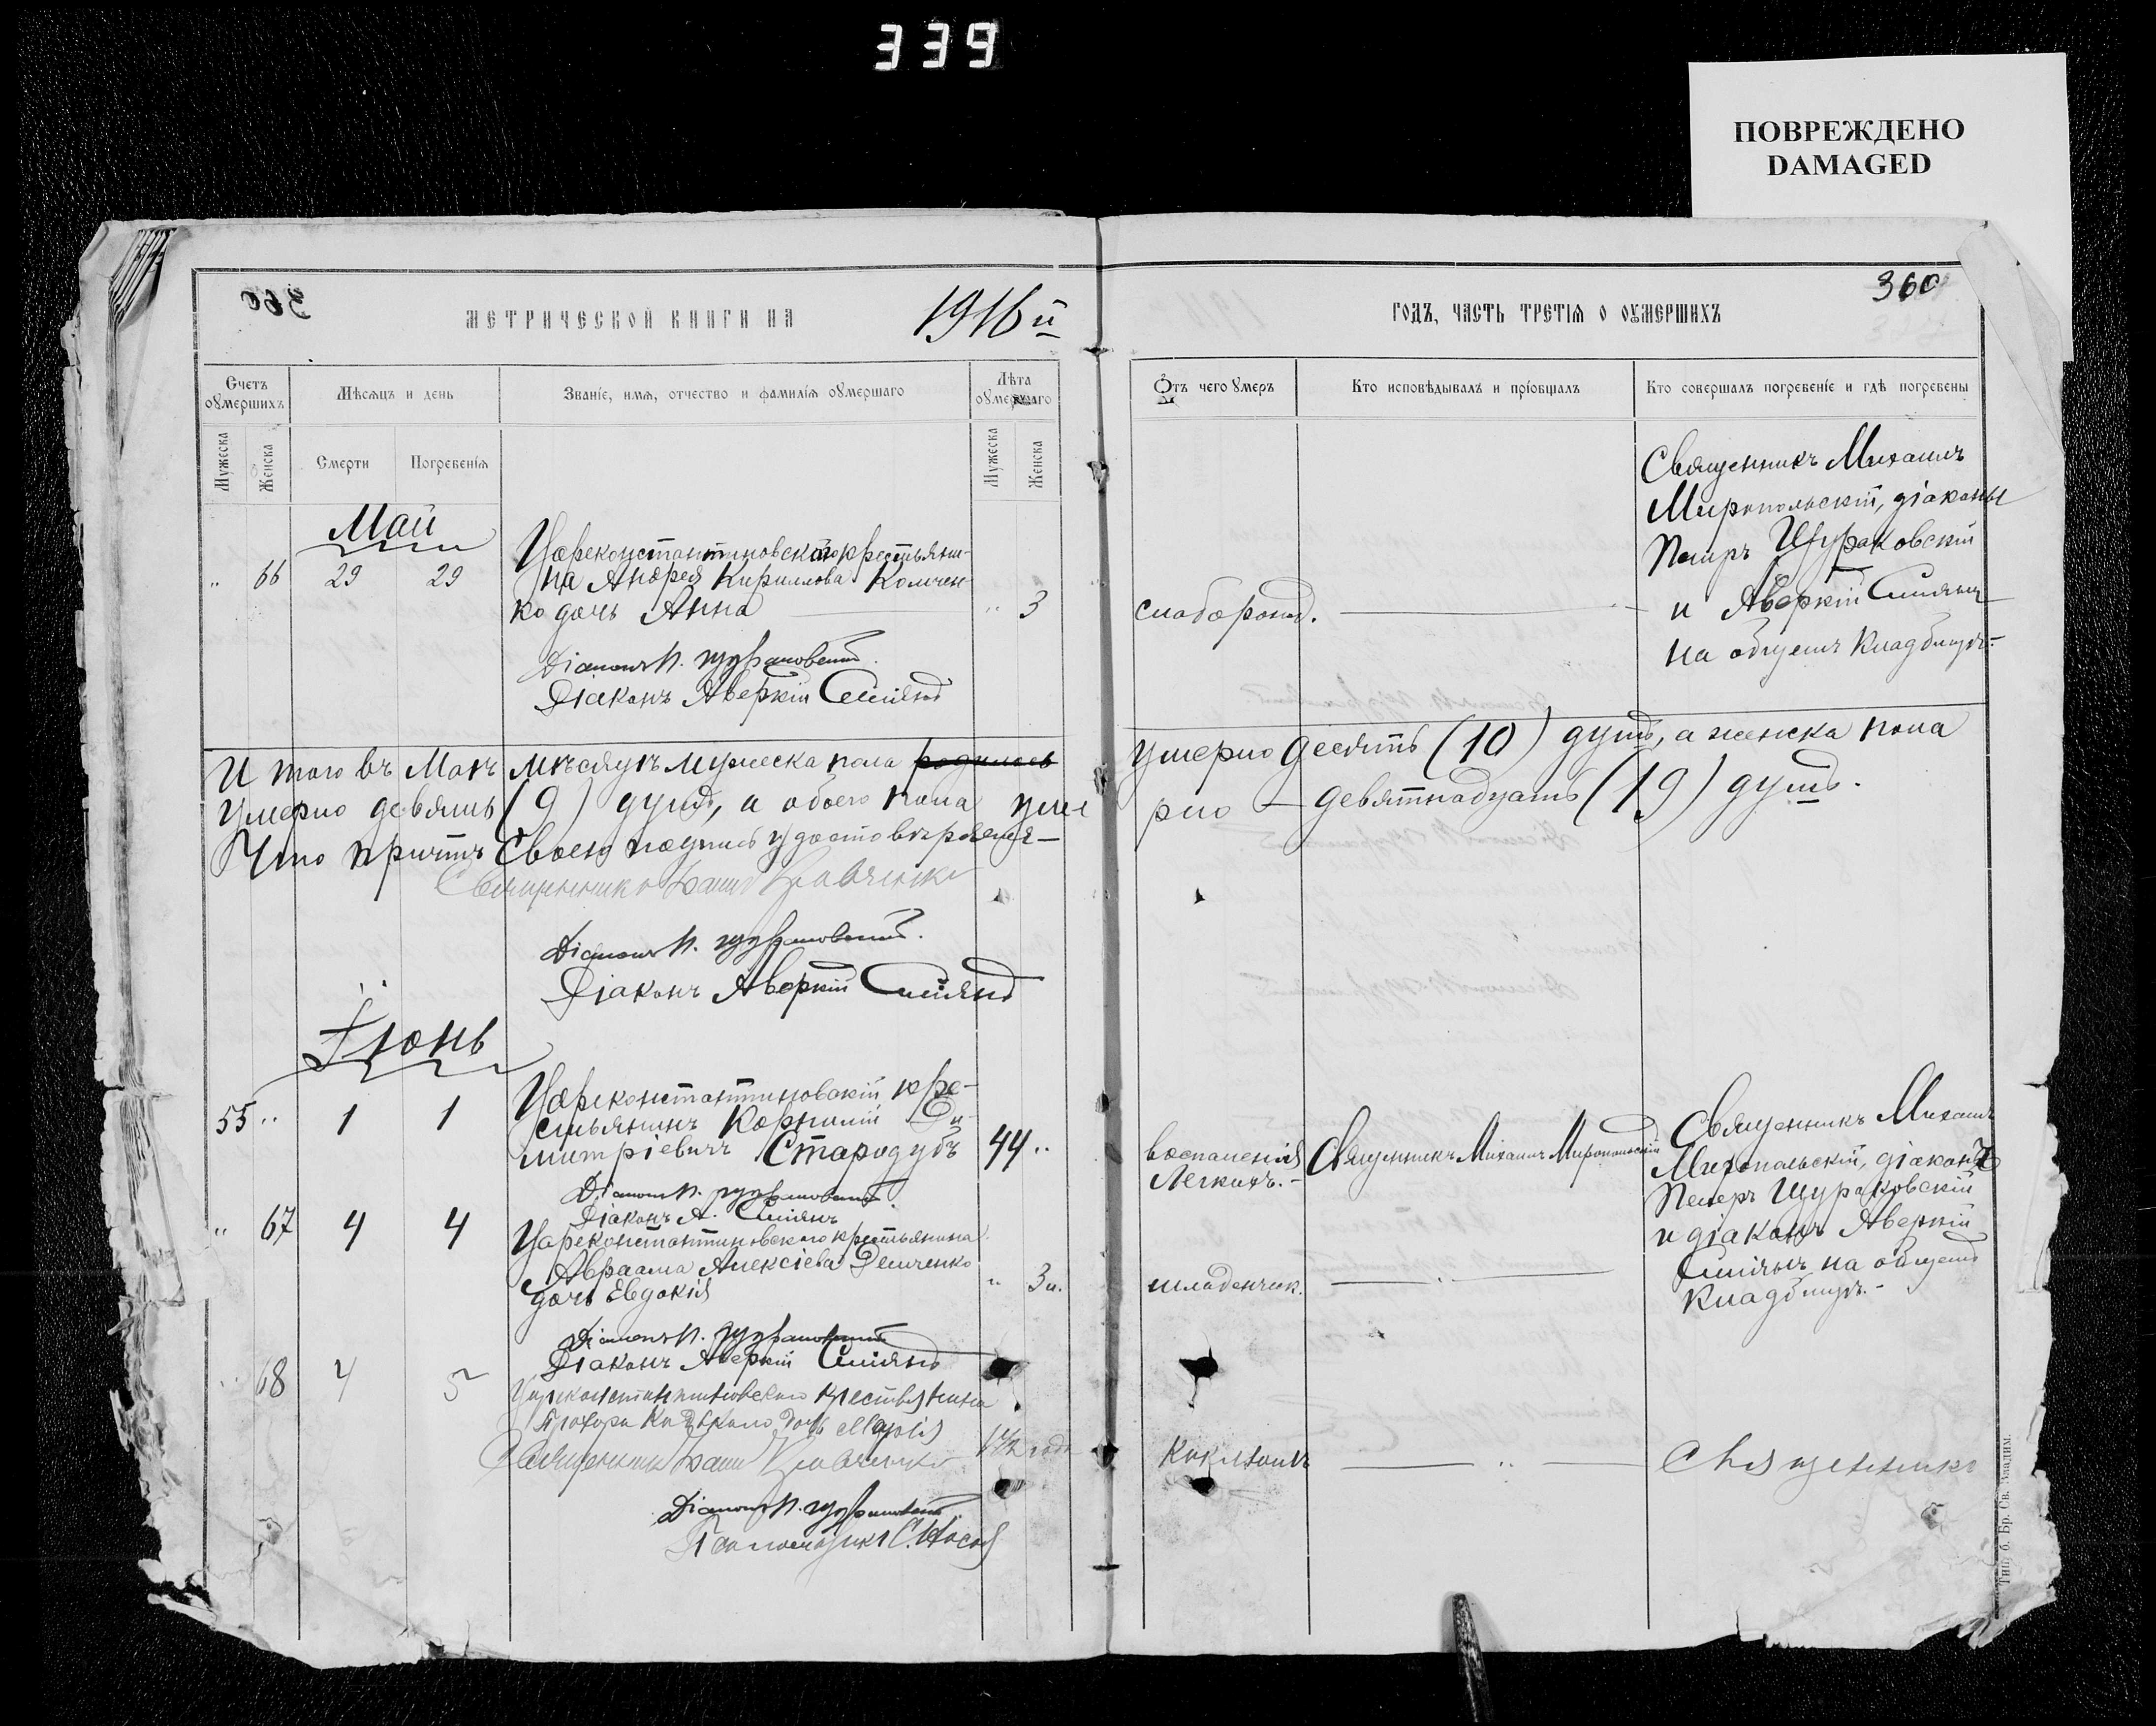 339
ПОВРЕЖДЕНО
DAMAGED
360
МЕТРИЧЕСКОЙ КНИГИ НА 1916й
ГОДЪ, ЧАСТЬ ТРЕТІЯ О ОУМЕРШИХЪ
360
Счетъ оумершихъ
Мѣсяцъ и день
Званіе, имя, отчество и фамилія оумершаго
Лѣта оумершаго
Отъ чего умеръ
Кто исповѣдывалъ и пріобщалъ
Кто совершалъ погребеніе и гдѣ погребены
Мужеска
Женска
Смерти
Погребенія
Мужеска
Женска
Май
" 66 29 29
Цареконстантиновскаго крестьяни-
на Андрея Кириллова Коломчен-
ко дочь Анна " 3
слаборожд.
Священникъ Михаилъ
Миропольскій, діаконы
Петръ Щураковскій
и Аверкій Симянъ
на общемъ кладбищѣ.-
Діаконъ П. Щураковскій.
Діаконъ Аверкій Симянъ
И того въ Маѣ мѣсяцѣ мужеска пола родилось умерло десять (10) душъ, а женска пола
умерло девять (9) душъ, а обоего пола умерло — девятнадцать (19) душъ.
Что причтъ своею подписью удостовѣряетъ—
Священникъ Кравченко
Діаконъ П. Щураковскій.
Діаконъ Аверкій Симянъ
Іюнь
55 " 1 1
Цареконстантиновскій кре-
стьянинъ Корнилій Ди-
митріевичъ Стародубъ 44 "
воспаленія
Легкихъ.-
Священникъ Михаилъ Миропольскій
Священникъ Михаилъ
Миропольскій, діаконъ
Петръ Щураковскій
и діаконъ Аверкій
Симянъ на общемъ
кладбищѣ.-
Діаконъ П. Щураковскій.
Діаконъ А. Симянъ
" 67 4 4
Цареконстантиновскаго крестьянина
Авраама Алексіева Демченко
дочь Евдокія " 3 н.
младенчик.
Діаконъ П. Щураковскій
Діаконъ Аверкій Симянъ
" 68 4 5
Цареконстантиновскаго крестьянина
Прохора дочь Марія
1 1/2 года
Коклюшъ
Священникъ
Священникъ Кравченко
Діаконъ П. Щураковскій
Псаломщикъ С. Носаль
Тип. б. Бр. Св. Владим.